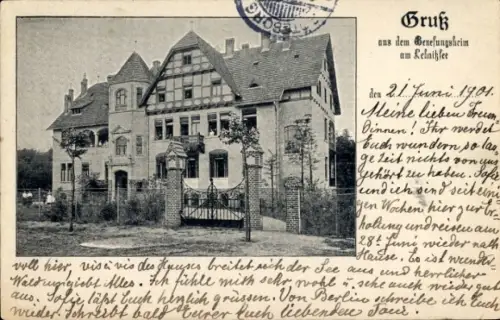 Gruß
aus dem Genesungsheim
am Lehnitzsee
den 21. Juni 1901.
Meine lieben Freun
dinnen! Ihr werdet
Euch wundern, so lan
ge Zeit nichts von uns
gehört zu haben. Sofie
und ich sind seit eini
gen Wochen hier zur Er
holung und reisen am
28t Juni wieder nach
Hause. Es ist wunder
voll hier, vis à vis des Hauses breitet sich der See aus und herrlicher
Wald umgiebt Alles. Ich fühle mich sehr, wohl u. sehe auch wieder gut
aus. Sofie läßt Euch herzlich grüssen. Von Berlin schreibe ich Euch
wieder. Schreibt bald Eurer Euch liebenden